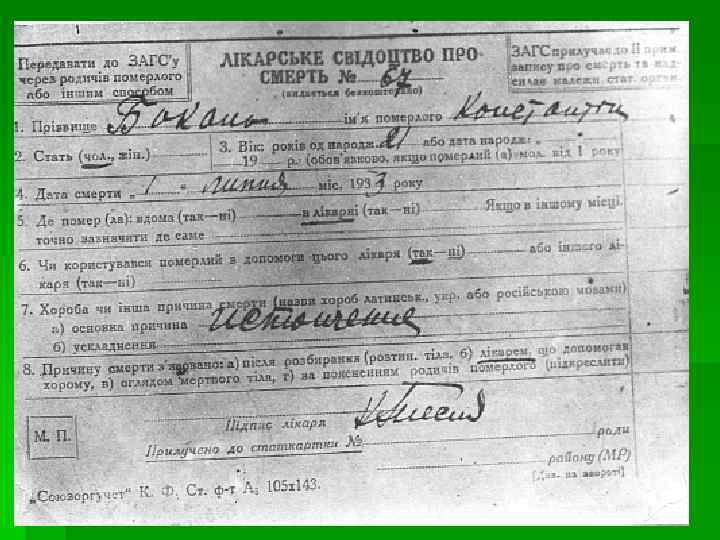 Передавати до ЗАГС'у
через родичів померлого
або іншим способом
ЛІКАРСЬКЕ СВІДОЦТВО ПРО
СМЕРТЬ № 67
(видається безкоштовно)
ЗАГС прилучає до II прим.
запису про смерть та над-
силає належн. стат. орган.
1. Прізвище Бокань ім'я померлого Константин
2. Стать (чол., жін.) 3. Вік: років од народж. 21 або дата народж: "
19 р. (обов'язково, якщо померлий (а) мол. від 1 року
4. Дата смерти „ 1 " липня міс. 1933 року
5. Де помер (ла): вдома (так—ні) в лікарні (так—ні) Якщо в іншому місці,
точно зазначити де саме
6. Чи користувався померлий в допомоги цього лікаря (так—ні) або іншого лі-
каря (так—ні)
7. Хороба чи інша причина смерти (назви хороб латинськ., укр. або російською мовами)
а) основна причина Истощения
б) ускладнення
8. Причину смерти з'ясовано: а) після розбирання (розтин. тіла, б) лікарем, що допомогав
хорому, в) оглядом мертвого тіла, г) за поясненням родичів померлого (підкреслити)
М. П.
Підпис лікаря
Прилучено до статкартки № ради
району (МР)
[Див. на звороті]
„Союзоргучет" К. Ф. Ст. ф-т А, 105х143.